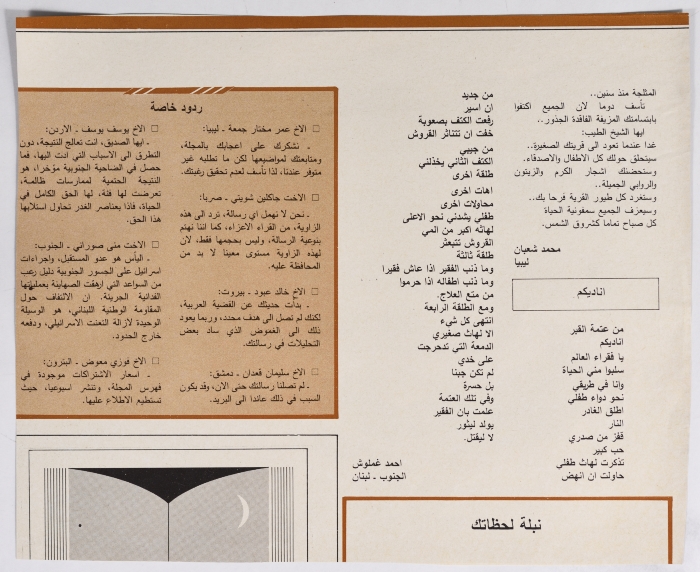 المثلجة منذ سنين..
تأسف دوما لان الجميع اكتفوا
بابتسامتك المزيفة الفاقدة الجذور..
ايها الشيخ الطيب:
غدا عندما نعود الى قريتك الصغيرة..
سيتحلق حولك كل الاطفال والاصدقاء.
وستحضنك اشجار الكرم والزيتون
والروابي الجميلة..
وستغرد كل طيور القرية فرحا بك..
وسيعزف الجميع سمفونية الحياة
كل صباح تماما كشروق الشمس.
محمد شعبان
ليبيا
اناديكم
من عتمة القبر
اناديكم
يا فقراء العالم
سلبوا مني الحياة
وانا في طريقي
نحو دواء طفلي
اطلق الغادر
النار
قفز من صدري
حب كبير
تذكرت لهاث طفلي
حاولت ان انهض
من جديد
ان اسير
رفعت الكتف بصعوبة
خفت ان تتناثر القروش
من جيبي
الكتف الثاني يخذلني
طلقة اخرى
اهات اخرى
محاولات اخرى
طفلي يشدني نحو الاعلى
لهاثه اكبر من المي
القروش تتبعثر
طلقة ثالثة
وما ذنب الفقير اذا عاش فقيرا
وما ذنب اطفاله اذا حرموا
من متع العلاج.
ومع الطلقة الرابعة
انتهى كل شيء
الا لهاث صغيري
الدمعة التي تدحرجت
على خدي
لم تكن جبنا
بل حسرة
وفي تلك العتمة
علمت بان الفقير
يولد ليثور
لا ليقتل.
احمد غملوش
الجنوب ـ لبنان
نبلة لحظاتك
ردود خاصة
□ الاخ عمر مختار جمعة ـ ليبيا:
ـ نشكرك على اعجابك بالمجلة،
ومتابعتك لمواضيعها لكن ما تطلبه غير
متوفر عندنا، لذا نأسف لعدم تحقيق رغبتك.
□ الاخت جاكلين شويتي ـ صربا:
ـ نحن لا نهمل أي رسالة، ترد الى هذه
الزاوية، من القراء الاعزاء، كما اننا نهتم
بنوعية الرسالة، وليس بحجمها فقط، لان
لهذه الزاوية مستوى معينا لا بد من
المحافظة عليه.
□ الاخ خالد عبود ـ بيروت:
ـ بدأت حديثك عن القضية العربية،
لكنك لم تصل الى هدف محدد، وربما يعود
ذلك الى الغموض الذي ساد بعض
التحليلات في رسالتك.
□ الاخ سليمان قعدان ـ دمشق:
ـ لم تصلنا رسالتك حتى الان، وقد يكون
السبب في ذلك عائدا الى البريد.
□ الاخ يوسف يوسف ـ الاردن:
ـ ايها الصديق، انت تعالج النتيجة، دون
التطرق الى الاسباب التي ادت اليها، فما
حصل في الضاحية الجنوبية مؤخرا، هو
النتيجة الحتمية لممارسات ظالمة،
تعرضت لها فئة، لها الحق الكامل في
الحياة، فاذا بعناصر الغدر تحاول استلابها
هذا الحق.
□ الاخت منى صوراني ـ الجنوب:
ـ اليأس هو عدو المستقبل، واجراءات
اسرائيل على الجسور الجنوبية دليل رعب
من السواعد التي ارهقت الصهاينة بعملياتها
الفدائية الجريئة. ان الالتفاف حول
المقاومة الوطنية اللبناني، هو الوسيلة
الوحيدة لازالة التعنت الاسرائيلي، ودفعه
خارج الحدود.
□ الاخ فوزي معوض ـ البترون:
ـ اسعار الاشتراكات موجودة في
فهرس المجلة، وتنشر اسبوعيا، حيث
تستطيع الاطلاع عليها.